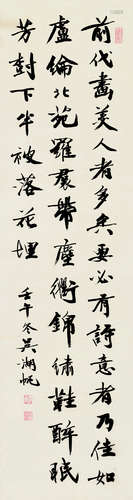 前代畫美人者多矣要必有詩意者乃佳如
盧綸北苑羅裙帶塵衢錦繡鞋醉眠
芳樹下半被落花埋
壬午冬吳湖帆